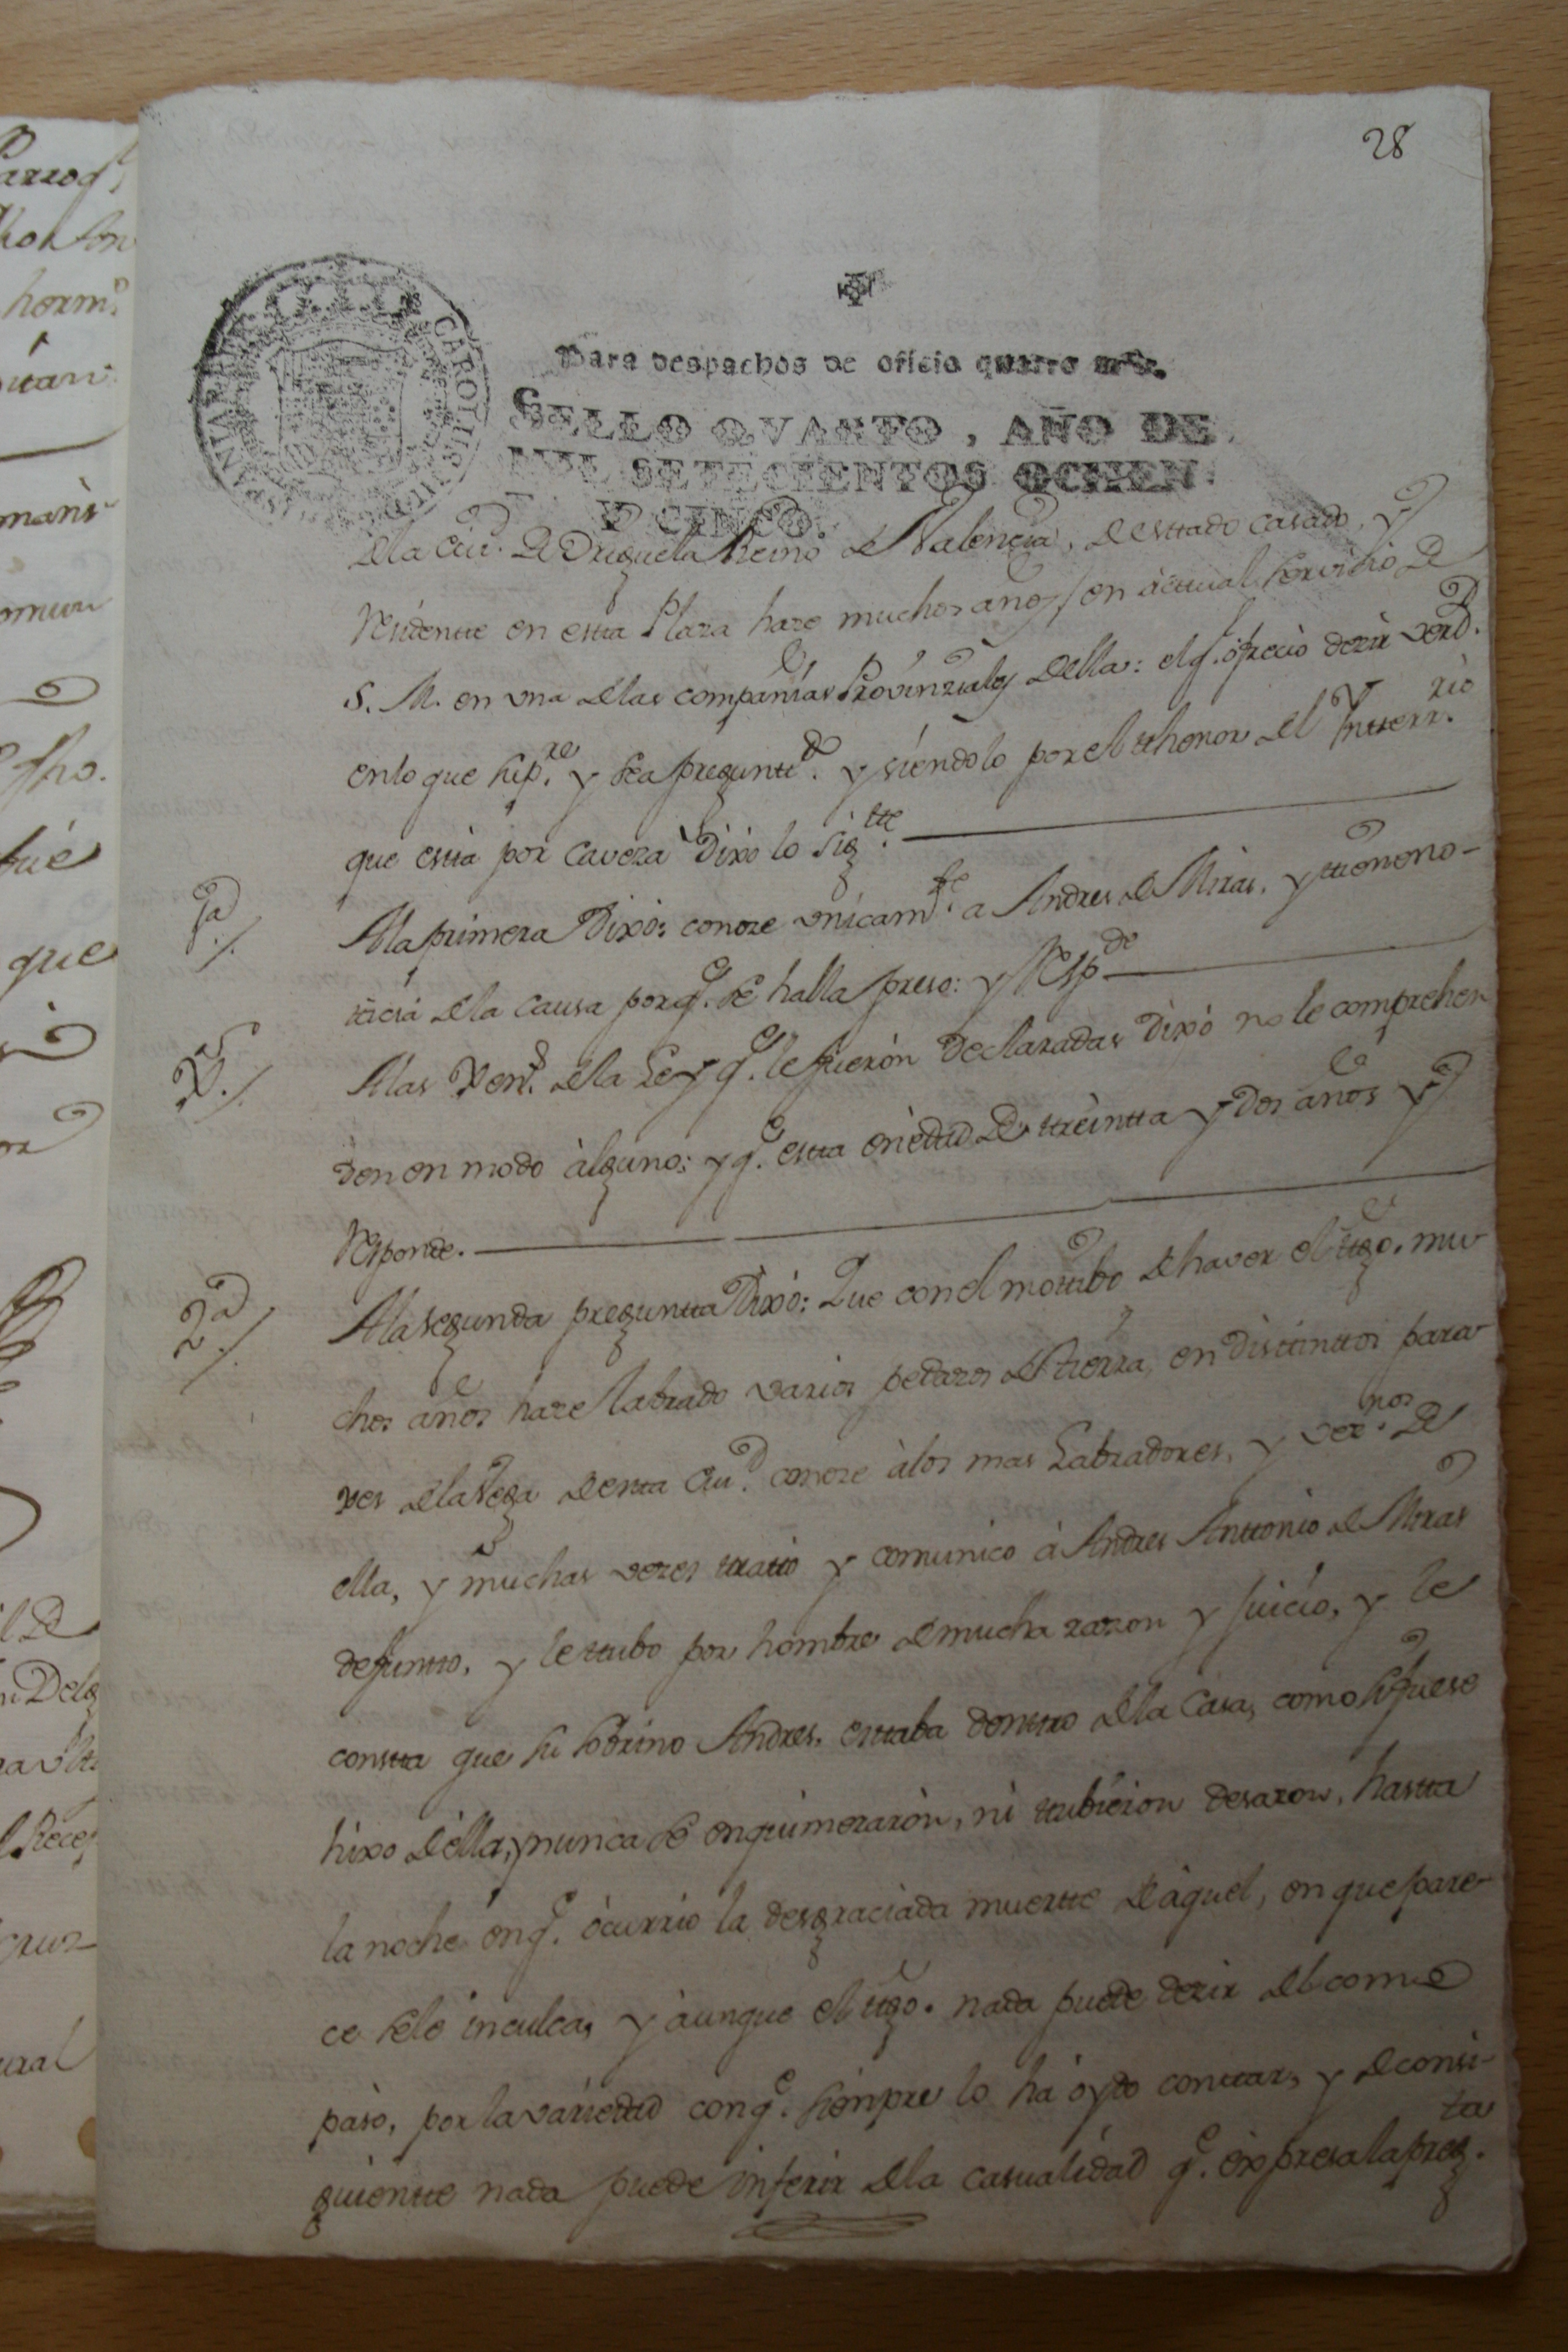 28
Para despachos de oficio quatro mrs.
SELLO QVARTO, AÑO DE
MIL SETECIENTOS OCHEN
Y CINCO.
CAROLUS
dela Ciud. de Orig.uela Reino de Valencia, de esttado casado, y
Residentte en estta Plaza haze muchos años, en actual servicio de
S. M. en vna delas compañias Provinziales della: el q.e ofrecio dezir verd.
en lo que sup.re y sea pregunt.do y siendolo por el thenor del Ynterr.rio
que estta por caveza Dixo lo sig.tte
1a./. Ala primera Dixo: conoze vnicam.te a Andres de Miras, y ttiene no-
ticia dela causa porq.e se halla preso: y Resp.de
./. Alas dela Ley q.e le fueron declaradas Dixo no le comprehen
den en modo alguno: y q.e estta en edad de treintta y dos años y
Responde.
2a./. Ala segunda preguntta Dixo: Que con el mottibo de haver el ttgo. mu-
chos años haze labrado varios pedazos de tierra, en disttinttos para-
xes dela Vega de estta Ciud. conoze à los mas Labradores, y vez.nos de
ella, y muchas vezes ttratto y comunico à Andres Anttonio de Miras
defuntto, y le ttubo por hombre de mucha razon y juicio, y le
constta que su sobrino Andres. esttaba denttro dela Casa, como si fuese
hixo della, y nunca se enquimeraron, ni ttubieron desazon, hastta
la noche en q.e òcurrio la desgraciada muertte de àquel, en que pare-
ce sele inculca, y àunque el ttgo. nada puede dezir del como
pàso, por la variedad con q.e sienpre lo hà oydo conttar, y de consi-
guientte nada puede inferir dela casualidad q.e expresa la preg.ta